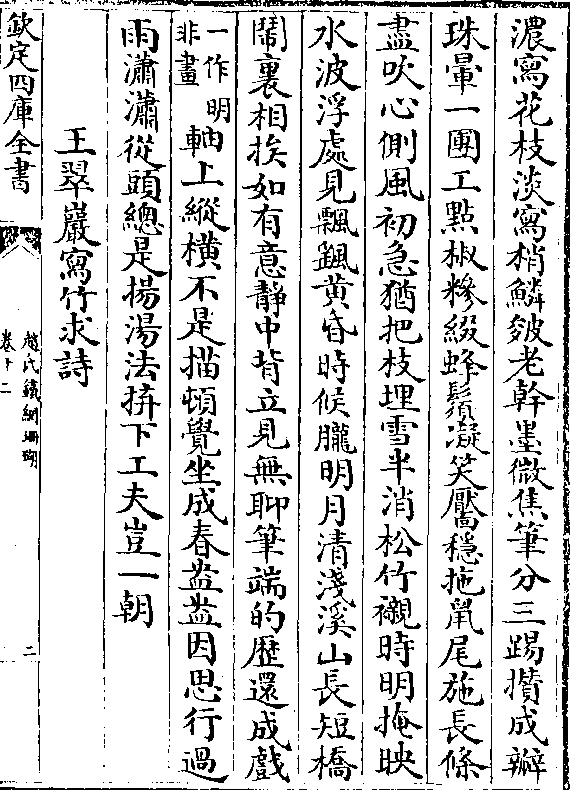 濃寫花枝淡寫梢鱗皴老幹墨微焦筆分三踢攢成瓣
珠暈一團工點椒糝綴蜂鬚凝笑靨穩拖䑕尾施長條
盡吹心側風初急猶把枝埋雪半消松竹襯時明掩映
水波浮處見飄颻黄昏時候朧明月清淺溪山長短橋
鬧裏相挨如有意靜中背立見無聊筆端的歴還成戲
一作明
非晝
軸上縱橫不是描頓覺坐成春盎盎因思行過
雨瀟瀟從頭總是揚湯法拚下工夫豈一朝
王翠巖寫竹求詩
欽定四庫全書
趙氏鐵網珊瑚
卷十二
二